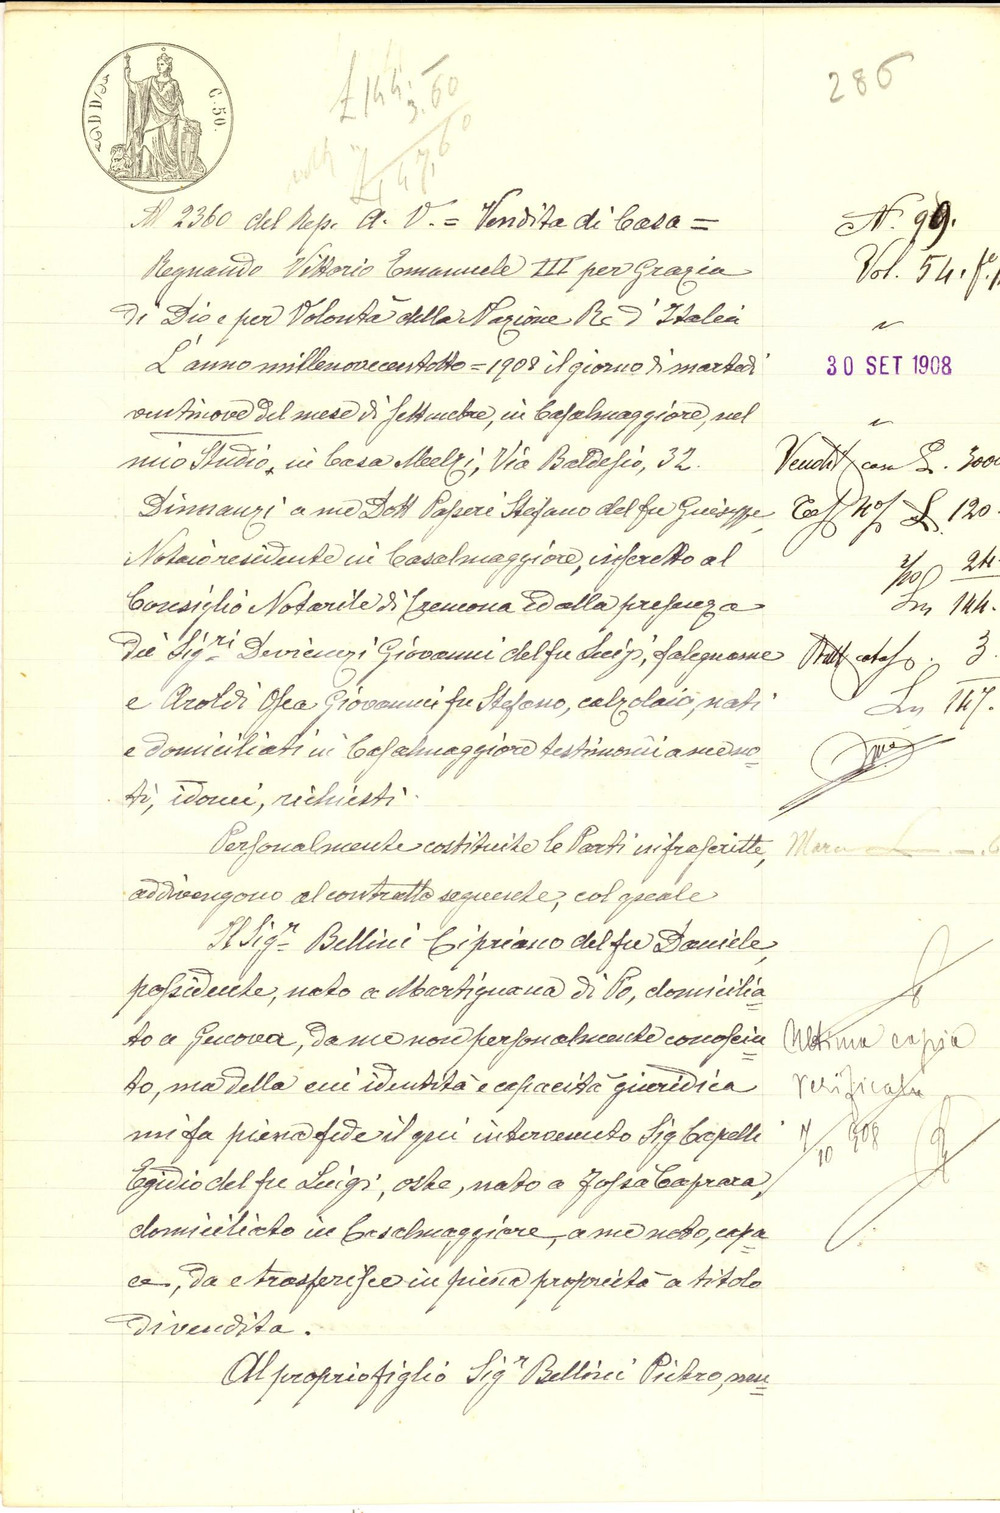 C. 50.
£ 144.
3.60
£ 147,60
286
N 2360 del Rep. A. V. = Vendita di Casa =
Regnando Vittorio Emanuele III per Grazia
di Dio e per Volontà della Nazione Re d'Italia
L'anno millenovecentotto = 1908 il giorno di martedì
ventinove del mese di Settembre, in Casalmaggiore, nel
mio Studio, in Casa Melzi, Via Baldesio, 32.
Dinnanzi a me Dott Paseri Stefano del fu Giuseppe,
Notaio residente in Casalmaggiore, inscritto al
Consiglio Notarile di Cremona ed alla presenza
dei Sigri Devicenzi Giovanni del fu Luigi, falegname
e Aroldi Osea Giovanni fu Stefano, calzolaio, nati
e domiciliati in Casalmaggiore testimoni a me no=
ti, idonei, richiesti.
Personalmente costituite le Parti infrascritte,
addivengono al contratto seguente, col quale
Il Sigr Bellini Cipriano del fu Daniele,
possidente, nato a Martignana di Po, domicilia=
to a Genova, da me non personalmente conosciu=
to, ma della cui identità e capacità giuridica
mi fa piena fede il qui intervenuto Sig Capelli
Egidio del fu Luigi, oste, nato a Fossa Caprara,
domiciliato in Casalmaggiore, a me noto, capa=
ce, da e trasferisce in piena proprietà a titolo
di vendita.
Al proprio figlio Sigr Bellini Pietro, mu=
N. 99.
Vol. 54. f.
30 SET 1908
Vendit casa L. 3000
L. 120.
2/10 24.
Ln 144.
3.
Ln 147.
Ultima copia
verificata
7/10 908